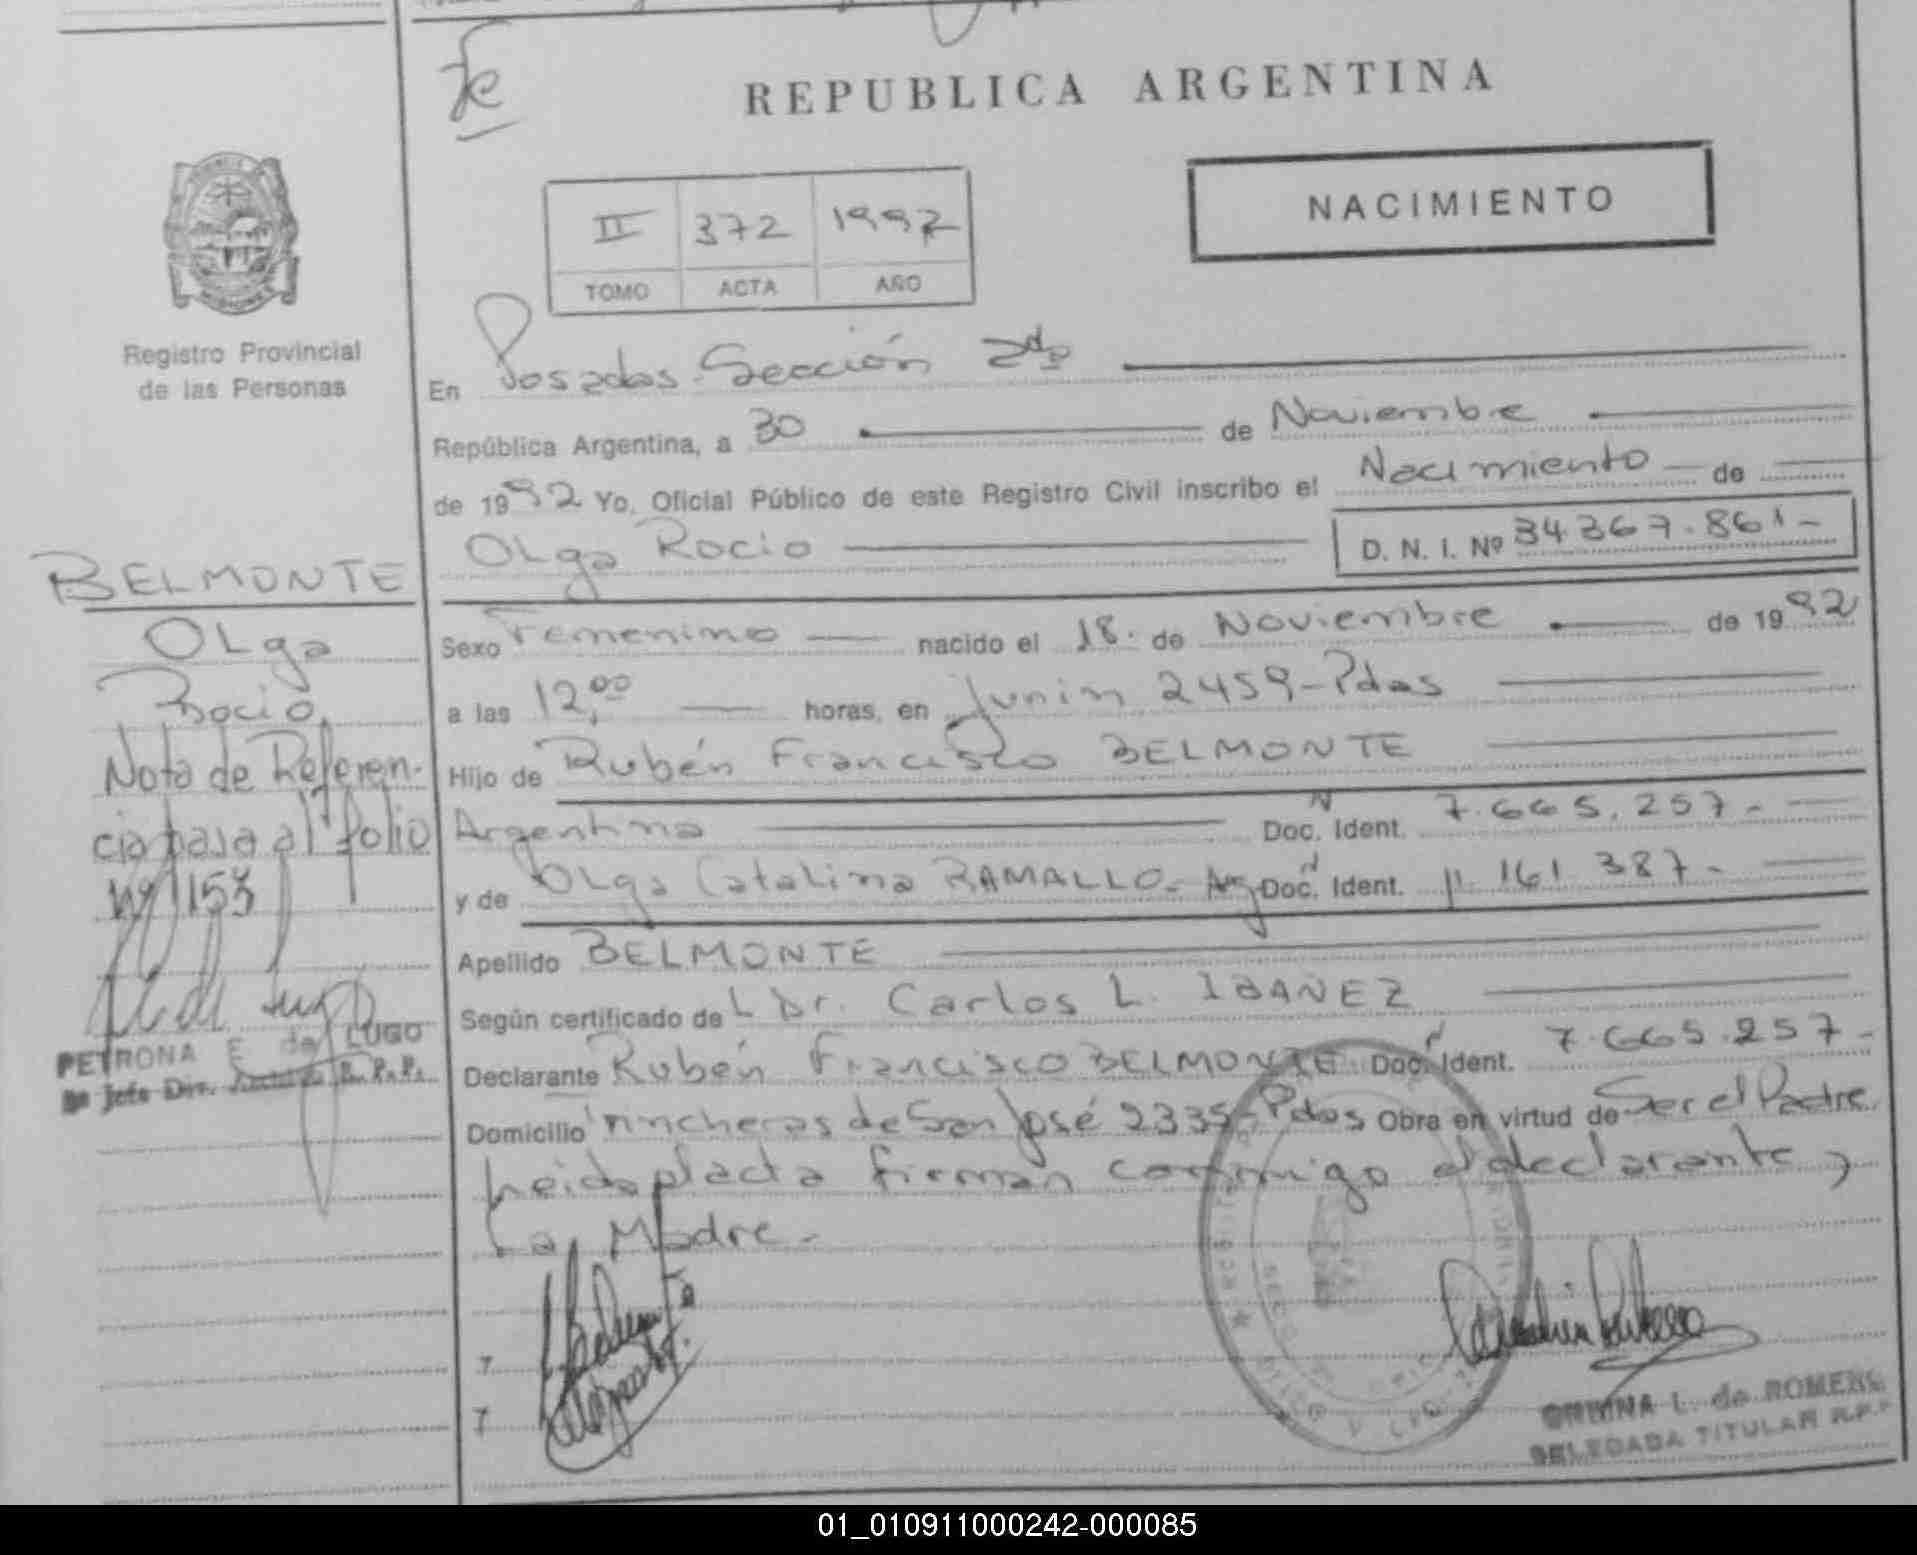 REPUBLICA ARGENTINA
NACIMIENTO
II 372 1992
TOMO ACTA AÑO
Registro Provincial
de las Personas
En Posadas-Sección 2da
República Argentina, a 30 de Noviembre
de 1992 Yo, Oficial Público de este Registro Civil inscribo el Nacimiento de
Olga Rocio
D. N. I. Nº 34.367.861-
BELMONTE
Olga
Rocio
Nota de Referen-
cia pasa al folio
nº 153
PETRONA E. de LUGO
Sexo Femenino nacido el 18. de Noviembre de 1992
a las 12,00 horas, en Junin 2459-Pdas
Hijo de Rubén Francisco BELMONTE
Argentina Doc. Ident. 7.665.257-
y de Olga Catalina RAMALLO- Arg Doc. Ident. 11.161.387-
Apellido BELMONTE
Según certificado de L Dr. Carlos L. IBAÑEZ
Declarante Rubén Francisco BELMONTE Doc. Ident. 7.665.257-
Domicilio Trincheras de San José 2335-Pdas Obra en virtud de Ser el Padre
Leida el acta firman conmigo el declarante y
La Madre.-
L. de ROMERO
DELEGADA TITULAR R.P.P
01_010911000242-000085